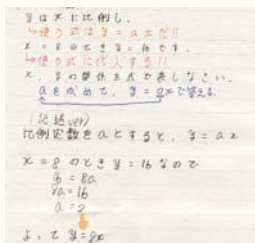 yはxに比例し、
↳使う式はy=axだ!!
x=8のときy=16です。
↳使う式に代入する!!
x、yの関係を式で表しなさい。
aを求めて、y=axで答える
(記述ver)
比例定数をaとすると、y=ax
x=8のときy=16なので
16=8a
8a=16
a=2
よってy=2x